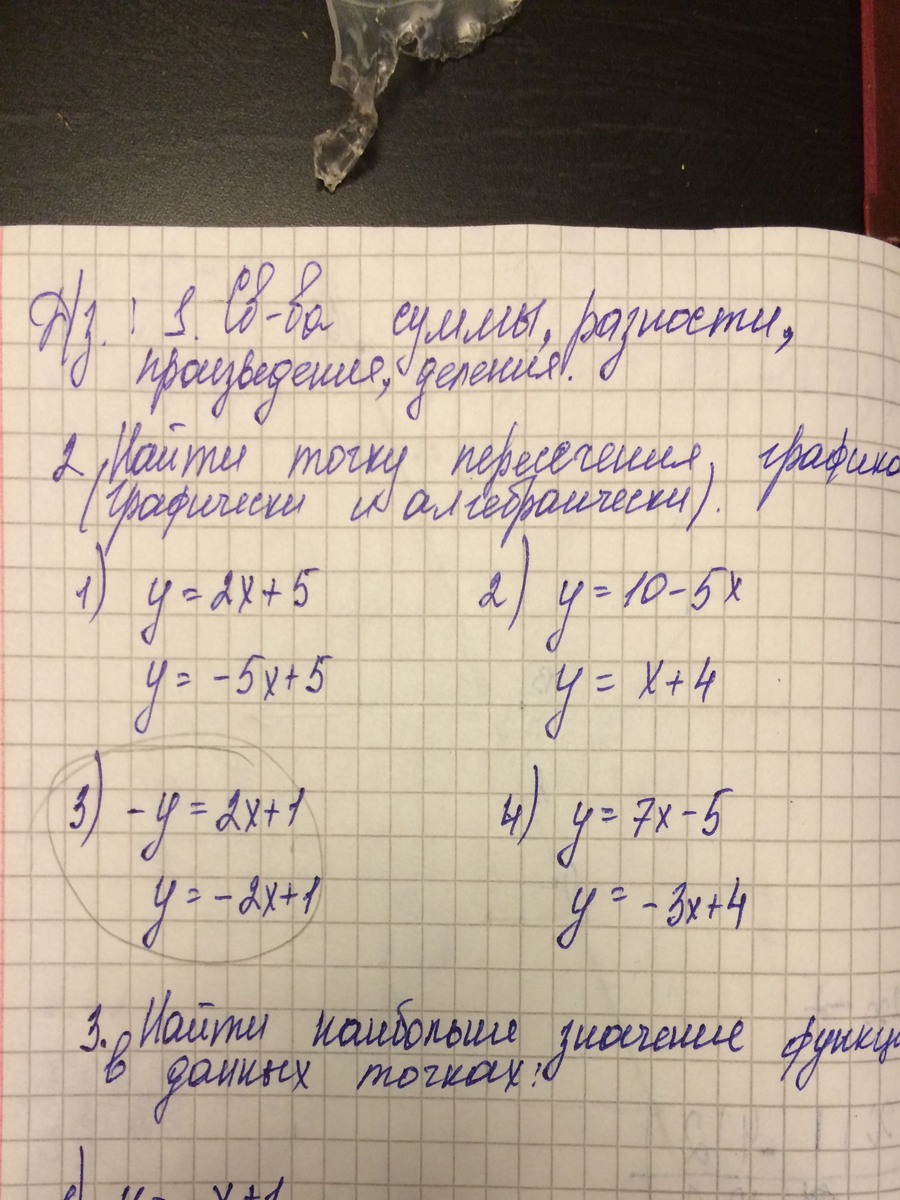 Д/з.: 1. Св-ва суммы, разности,
произведения, деления.
2. Найти точку пересечения графико
(графически и алгебраически).
1) y = 2x + 5
y = -5x + 5
2) y = 10 - 5x
y = x + 4
3) -y = 2x + 1
y = -2x + 1
4) y = 7x - 5
y = -3x + 4
3. Найти наибольше значение функци
в данных точках: